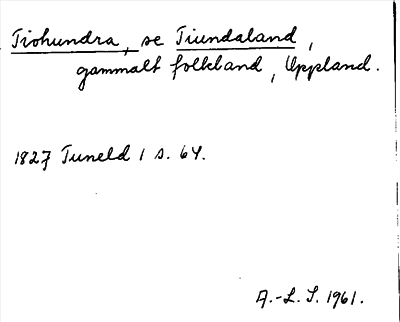 Tiohundra, se Tiundaland,
gammalt folkland, Uppland.
1827 Tuneld 1 s. 64.
A.-L. S. 1961.